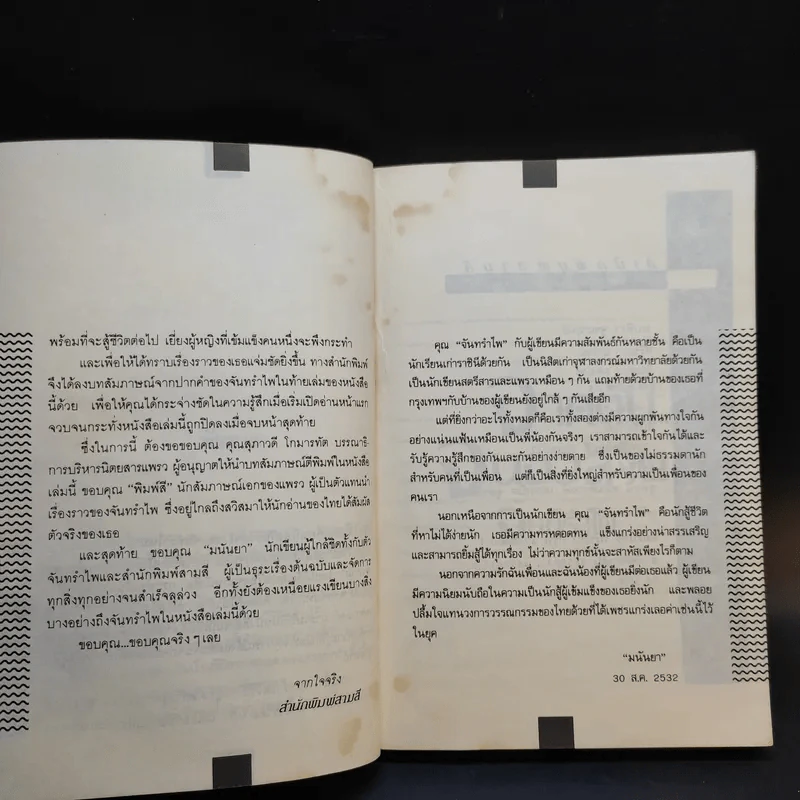 พร้อมที่จะสู้ชีวิตต่อไป เยี่ยงผู้หญิงที่เข้มแข็งคนหนึ่งจะพึงกระทำ
และเพื่อให้ได้ทราบเรื่องราวของเธอแจ่มชัดยิ่งขึ้น ทางสำนักพิมพ์
จึงได้ลงบทสัมภาษณ์จากปากคำของจันทรำไพในท้ายเล่มของหนังสือ
นี้ด้วย เพื่อให้คุณได้กระจ่างชัดในความรู้สึกเมื่อเริ่มเปิดอ่านหน้าแรก
จวบจนกระทั่งหนังสือเล่มนี้ถูกปิดลงเมื่อจบหน้าสุดท้าย
ซึ่งในการนี้ ต้องขอขอบคุณ คุณสุภาวดี โกมารทัต บรรณาธิ-
การบริหารนิตยสารแพรว ผู้อนุญาตให้นำบทสัมภาษณ์ตีพิมพ์ในหนังสือ
เล่มนี้ ขอบคุณ “พิมพ์สี” นักสัมภาษณ์เอกของแพรว ผู้เป็นตัวแทนนำ
เรื่องราวของจันทรำไพ ซึ่งอยู่ไกลถึงสวิสมาให้นักอ่านของไทยได้สัมผัส
ตัวจริงของเธอ
และสุดท้าย ขอบคุณ “มนันยา” นักเขียนผู้ใกล้ชิดทั้งกับตัว
จันทรำไพและสำนักพิมพ์สามสี ผู้เป็นธุระเรื่องต้นฉบับและจัดการ
ทุกสิ่งทุกอย่างจนสำเร็จลุล่วง อีกทั้งยังต้องเหนื่อยแรงเขียนบางสิ่ง
บางอย่างถึงจันทรำไพในหนังสือเล่มนี้ด้วย
ขอบคุณ...ขอบคุณจริง ๆ เลย
จากใจจริง
สำนักพิมพ์สามสี
คุณ “จันทรำไพ” กับผู้เขียนมีความสัมพันธ์กันหลายชั้น คือเป็น
นักเรียนเก่าราชินีด้วยกัน เป็นนิสิตเก่าจุฬาลงกรณ์มหาวิทยาลัยด้วยกัน
เป็นนักเขียนสตรีสารและแพรวเหมือน ๆ กัน แถมท้ายด้วยบ้านของเธอที่
กรุงเทพฯกับบ้านของผู้เขียนยังอยู่ใกล้ ๆ กันเสียอีก
แต่ที่ยิ่งกว่าอะไรทั้งหมดก็คือเราทั้งสองต่างมีความผูกพันทางใจกัน
อย่างแน่นแฟ้นเหมือนเป็นพี่น้องกันจริงๆ เราสามารถเข้าใจกันได้และ
รับรู้ความรู้สึกของกันและกันอย่างง่ายดาย ซึ่งเป็นของไม่ธรรมดานัก
สำหรับคนที่เป็นเพื่อน แต่ก็เป็นสิ่งที่ยิ่งใหญ่สำหรับความเป็นเพื่อนของ
คนเรา
นอกเหนือจากการเป็นนักเขียน คุณ “จันทรำไพ” คือนักสู้ชีวิต
ที่หาไม่ได้ง่ายนัก เธอมีความทรหดอดทน แข็งแกร่งอย่างน่าสรรเสริญ
และสามารถยิ้มสู้ได้ทุกเรื่อง ไม่ว่าความทุกข์นั้นจะสาหัสเพียงไรก็ตาม
นอกจากความรักฉันเพื่อนและฉันน้องที่ผู้เขียนมีต่อเธอแล้ว ผู้เขียน
มีความนิยมนับถือในความเป็นนักสู้ผู้เข้มแข็งของเธอยิ่งนัก และพลอย
ปลื้มใจแทนวงการวรรณกรรมของไทยด้วยที่ได้เพชรแกร่งเลอค่าเช่นนี้ไว้
ในยุค
“มนันยา”
30 ส.ค. 2532